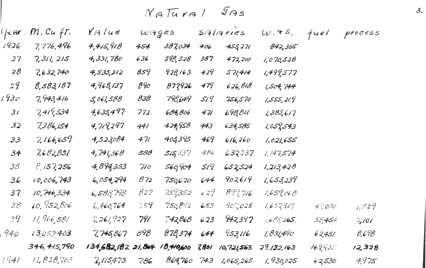 Natural Gas 3.
Year. M.Cu ft. Value wages salaries W.+S. fuel process
1926 7,776,496 4,415,918 454 387,034 406 455,271 842,305
27 7,311,215 4,331,780 636 598,328 387 472,200 1,070,528
28 7,632,740 4,535,312 859 928,163 479 571,414 1,499,577
29 8,583,187 4,968,137 890 877,926 479 626,818 1,504,744
1930 7,943,416 5,061,588 838 798,649 519 756,570 1,555,219
31 7,419,534 4,635,497 772 684,806 471 698,811 1,383,617
32 7,386,154 4,719,297 441 424,958 443 634,585 1,059,543
33 7,166,659 4,523,084 471 405,395 469 616,260 1,021,655
34 7,682,851 4,741,368 588 632,737
35 8,157,256 4,894,353 710 560,904 519 652,524 1,213,428
36 10,006,743 6,054,294 872 750,620 644 902,619 1,653,239
37 10,746,334 6,588,798 827 759,352 629 899,716 1,659,068
38 10,952,806 6,460,764 759 750,892 653 907,025 1,657,917
39 11,966,581 7,261,927 791 742,868 623 942,397 58,454
1940 13,053,403 7,745,867 898 878,374 644 953,116 1,831,490 62,451 8,698
346,415,790 134,682,182 21,864 18,410,600 7801 10,721,563 29,132,163 12,328
1941 11,828,703 7,115,473 786 864,760 743 1,065,265 1,930,025 62,530 4,975